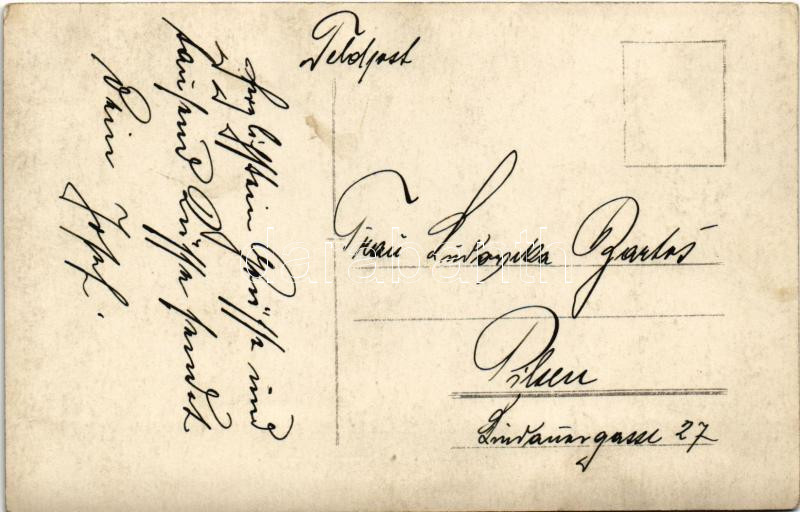 Feldpost
Herzlichsten Grüsse und
tausend Küsse sendet
Dein Josef.
Frau Ludovika Bartoš
Pilsen
Lindauergasse 27
darabanth